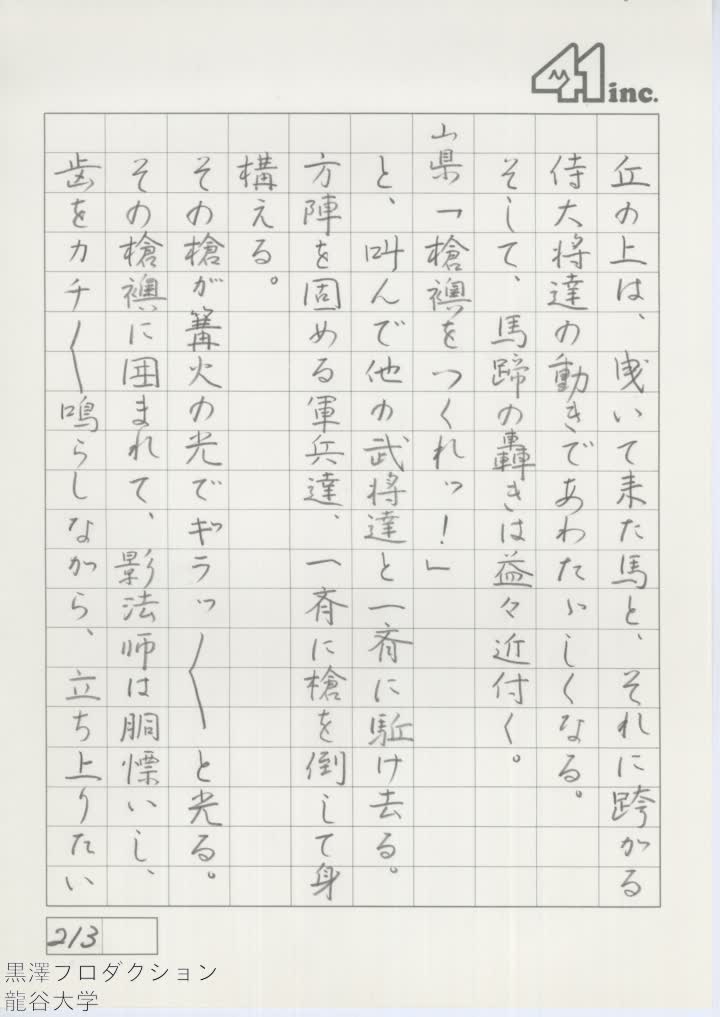 41 inc.
丘の上は、曳いて来た馬と、それに跨がる
侍大将達の動きであわたゞしくなる。
そして、馬蹄の轟きは益々近付く。
山県「槍襖をつくれッ！」
と、叫んで他の武将達と一斉に駈け去る。
方陣を固める軍兵達、一斉に槍を倒して身
構える。
その槍が篝火の光でギラッ〱と光る。
その槍襖に囲まれて、影法師は胴慄いし、
歯をカチ〱鳴らしながら、立ち上りたい
213
黒澤プロダクション
龍谷大学